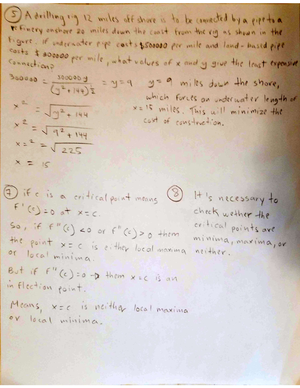 ⑤ A drilling rig 12 miles offshore is to be connected by a pipe to a
refinery onshore 20 miles down the coast from the rig as shown in the
figure. if underwater pipe costs $500000 per mile and land-based pipe
costs $300000 per mile, what values of x and y give the least expensive
connection?
300000 = 500000 y / (y² + 144)^½ = y = 9
y = 9 miles down the shore,
which forces an underwater length of
x = 15 miles. This will minimize the
cost of construction.
x² = √y² + 144
x² = √9² + 144
x = ² = √225
x = 15
⑦ if c is a critical point means
f'(c) = 0 at x = c.
So, if f''(c) < 0 or f''(c) > 0 them
the point x = c is either local maxima
or local minima.
But if f''(c) = 0 → them x = c is an
inflection point.
Means, x = c is neither local maxima
or local minima.
⑧ It is necessary to
check wether the
critical points are
minima, maxima, or
neither.